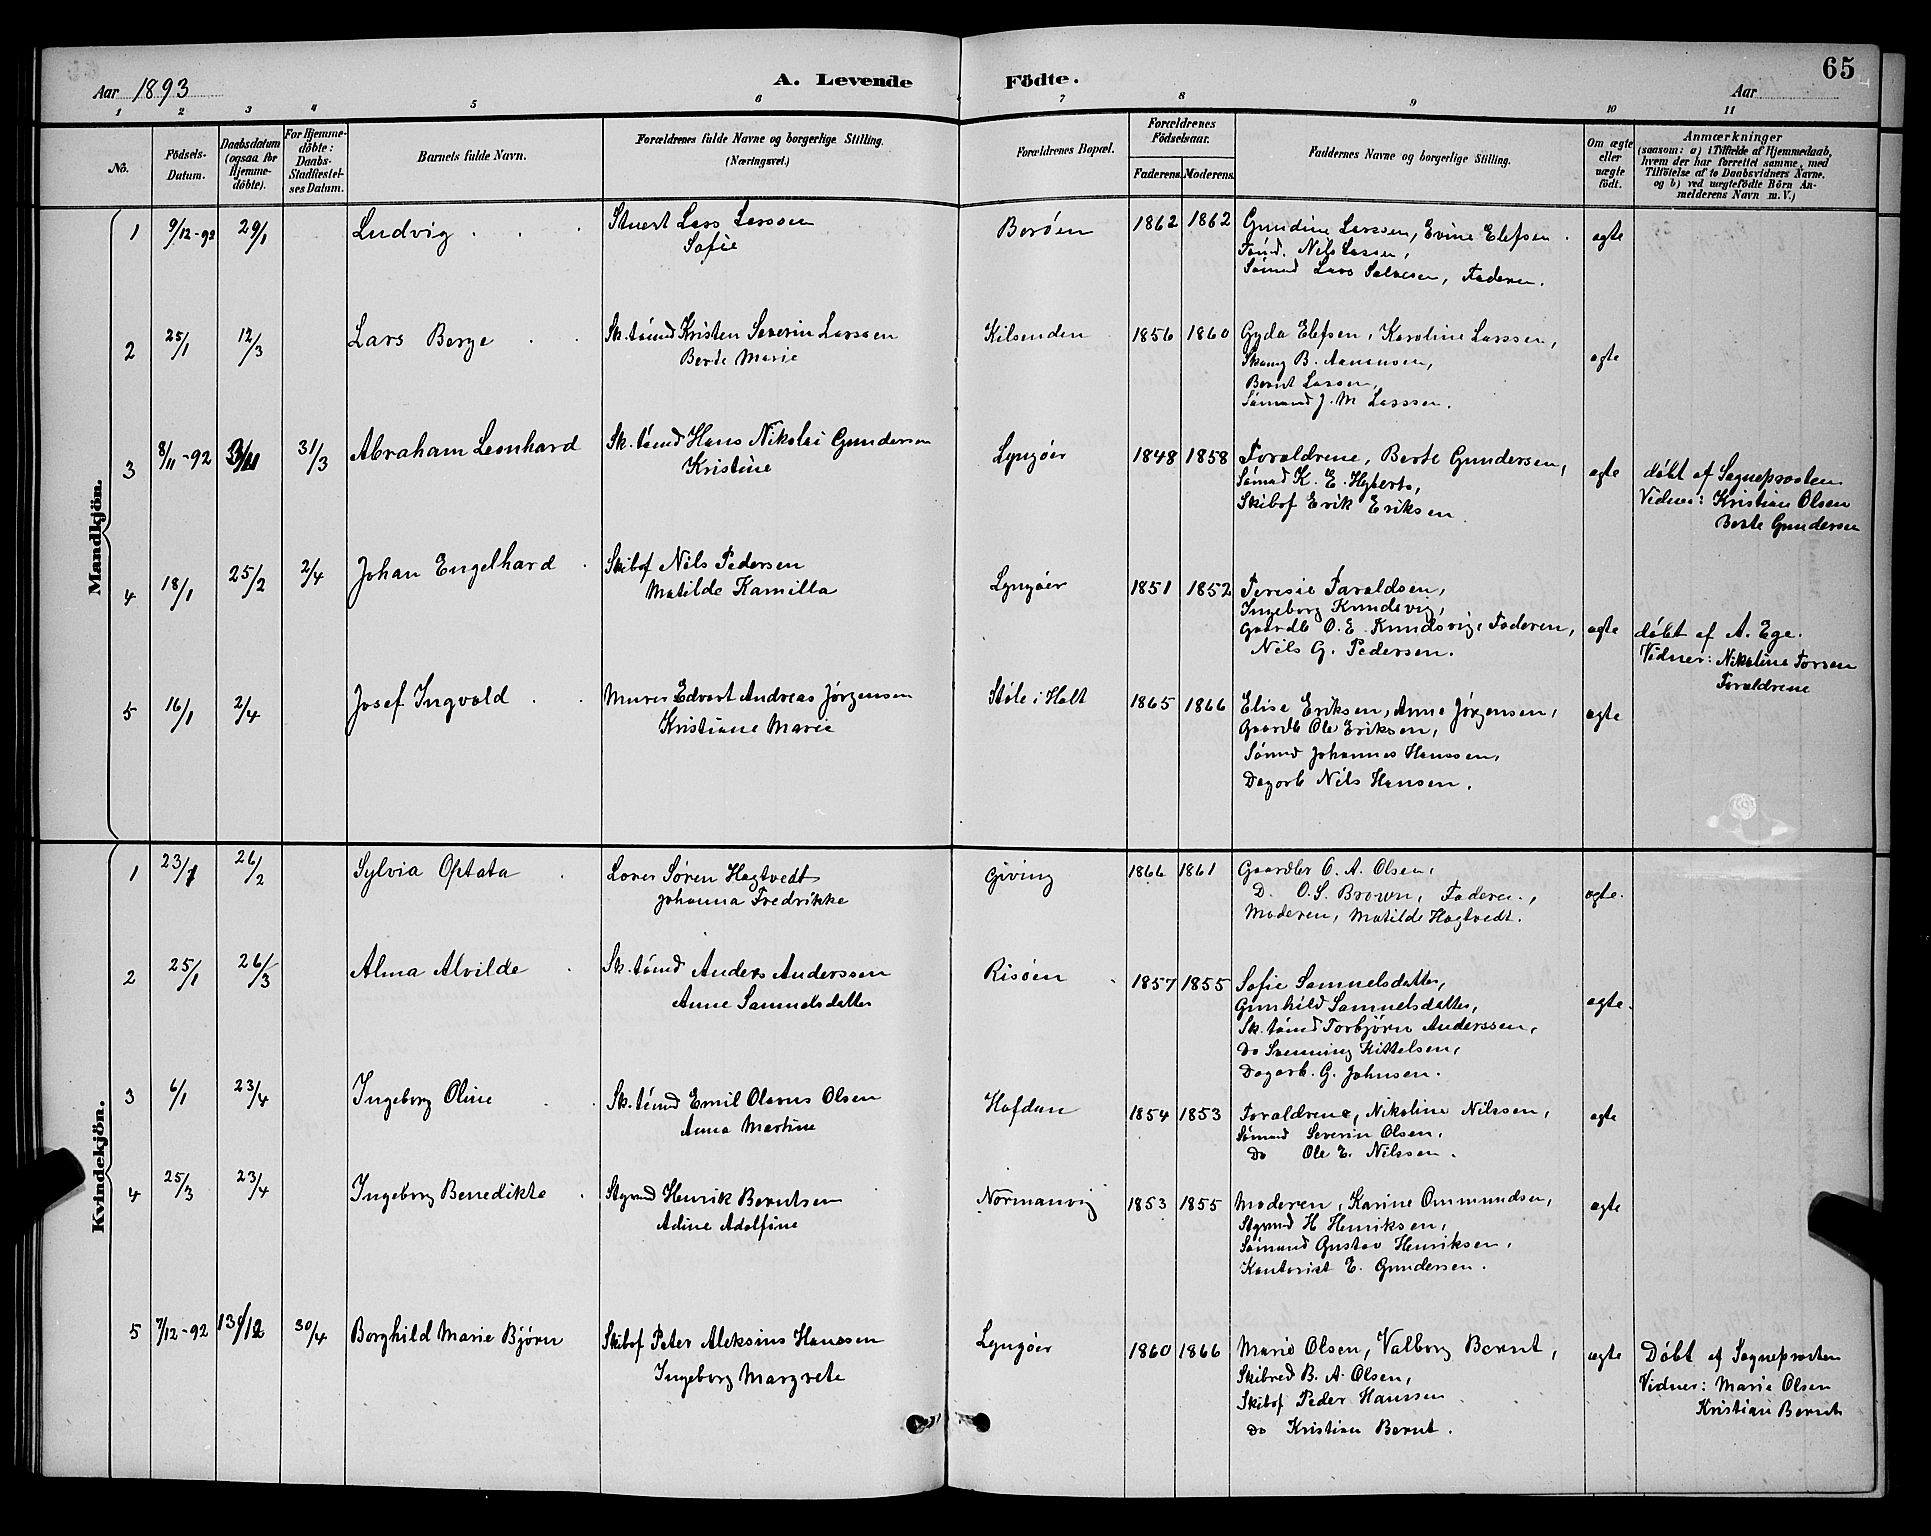 65
Aar 1893
A. Levende Födte.
Aar
1 2 3 4 5 6 7 8 9 10 11
No.
Födsels-Datum.
Daabsdatum (ogsaa for Hjemmedöbte).
For Hjemmedöbte: Daabs-Stadfæstelses Datum.
Barnets fulde Navn.
Forældrenes fulde Navne og borgerlige Stilling. (Næringsvei.)
Forældrenes Bopæl.
Forældrenes Födselsaar.
Faderens. Moderens.
Faddernes Navne og borgerlige Stilling.
Om ægte eller uægte födt.
Anmærkninger
(saasom: a) i Tilfælde af Hjemmedaab, hvem der har forrettet samme, med Tilföielse af to Daabsvidners Navne, og b) ved uægtefödte Börn Anmelderens Navn m. V.)
Mandkjön.
1 9/12-92 29/1 Ludvig Stuert Lars Larssen Borøen 1862 1862 Gundine Larssen, Evine Elefsen ægte
Sofie
Tømd. Nils Larsen,
Sømand Lars Salvesen, Faderen.
2 25/1 12/3 Lars Berge Sk.tømd Kristen Severin Larssen Kilsenden 1856 1860 Gyda Elefsen, Karoline Larssen, ægte
Berte Marie
B. Aanensen,
Bernt Larsen,
Sømand J. M Larssen.
3 8/11-92 31/3 Abraham Leonhard Sk.tømd Hans Nikolai Gundersen Lyngøer 1848 1858 Forældrene, Berte Gundersen, ægte døbt af Sogneprosten
Kristine
Sømad K. E. Hyberts,
Skibsf Erik Eriksen
Vidner: Kristian Olsen
Berte Gundersen
4 18/1 25/2 2/4 Johan Engelhard Skibsf Nils Pedersen Lyngøer 1851 1852 Teresie Taraldsen, ægte døbt af A. Ege.
Matilde Kamilla
Ingeborg Knudsvig,
Gaardb O. E. Knudsvig, Faderen,
Nils G. Pedersen.
Vidner: Nikoline Torsen
Forældrene
5 16/1 2/4 Josef Ingvald Murer Edvart Andreas Jørgensen Støle i Holt 1865 1866 Elise Eriksen, Anna Jørgensen, ægte
Kristiane Marie
Gaardb Ole Eriksen,
Sømnd Johannes Hanssen,
Dagarb Nils Hansen.
Kvindekjön.
1 23/1 26/2 Sylvia Optata Løver Søren Hagtvedt Giving 1866 1861 Gaardbr O. A. Olsen, ægte.
Johanna Fredrikke
D. O. S. Brown, Faderen,
Moderen, Matilde Hagtvedt.
2 25/1 26/3 Alma Alvilde Sk.tømd Anders Anderssen Risøen 1857 1855 Sofie Samuelsdatter, ægte.
Anne Samuelsdatter
Gunhild Samuelsdatter,
Sk.tømd Torbjørn Anderssen,
Do Svenning Kittelsen,
Dagarb. G. Johnsen.
3 6/1 23/4 Ingeborg Oline Sk.tømd Emil Olavus Olsen Hafdan 1854 1853 Forældrene, Nikoline Nilssen, ægte
Anna Martine
Sømand Severin Olsen,
Do Ole E. Nilssen.
4 25/3 23/4 Ingeborg Benedikte Stymd Henrik Berntsen Normanvig 1853 1855 Moderen, Karine Ommundsen, ægte
Adine Adolfine
Stymd H Henriksen,
Sømand Gustav Henriksen,
Kontorist E. Gundersen.
5 7/12-92 30/4 Borghild Marie Bjørn Skibsf Peter Aleksius Hanssen Lyngøer 1860 1866 Marie Olsen, Valborg Bernt, ægte Døbt af Sogneprosten
Ingeborg Margrete
Skibred B. A. Olsen,
Skibsf Peder Hanssen
Do Kristian Bernt.
Vidner: Marie Olsen
Kristian Bernt